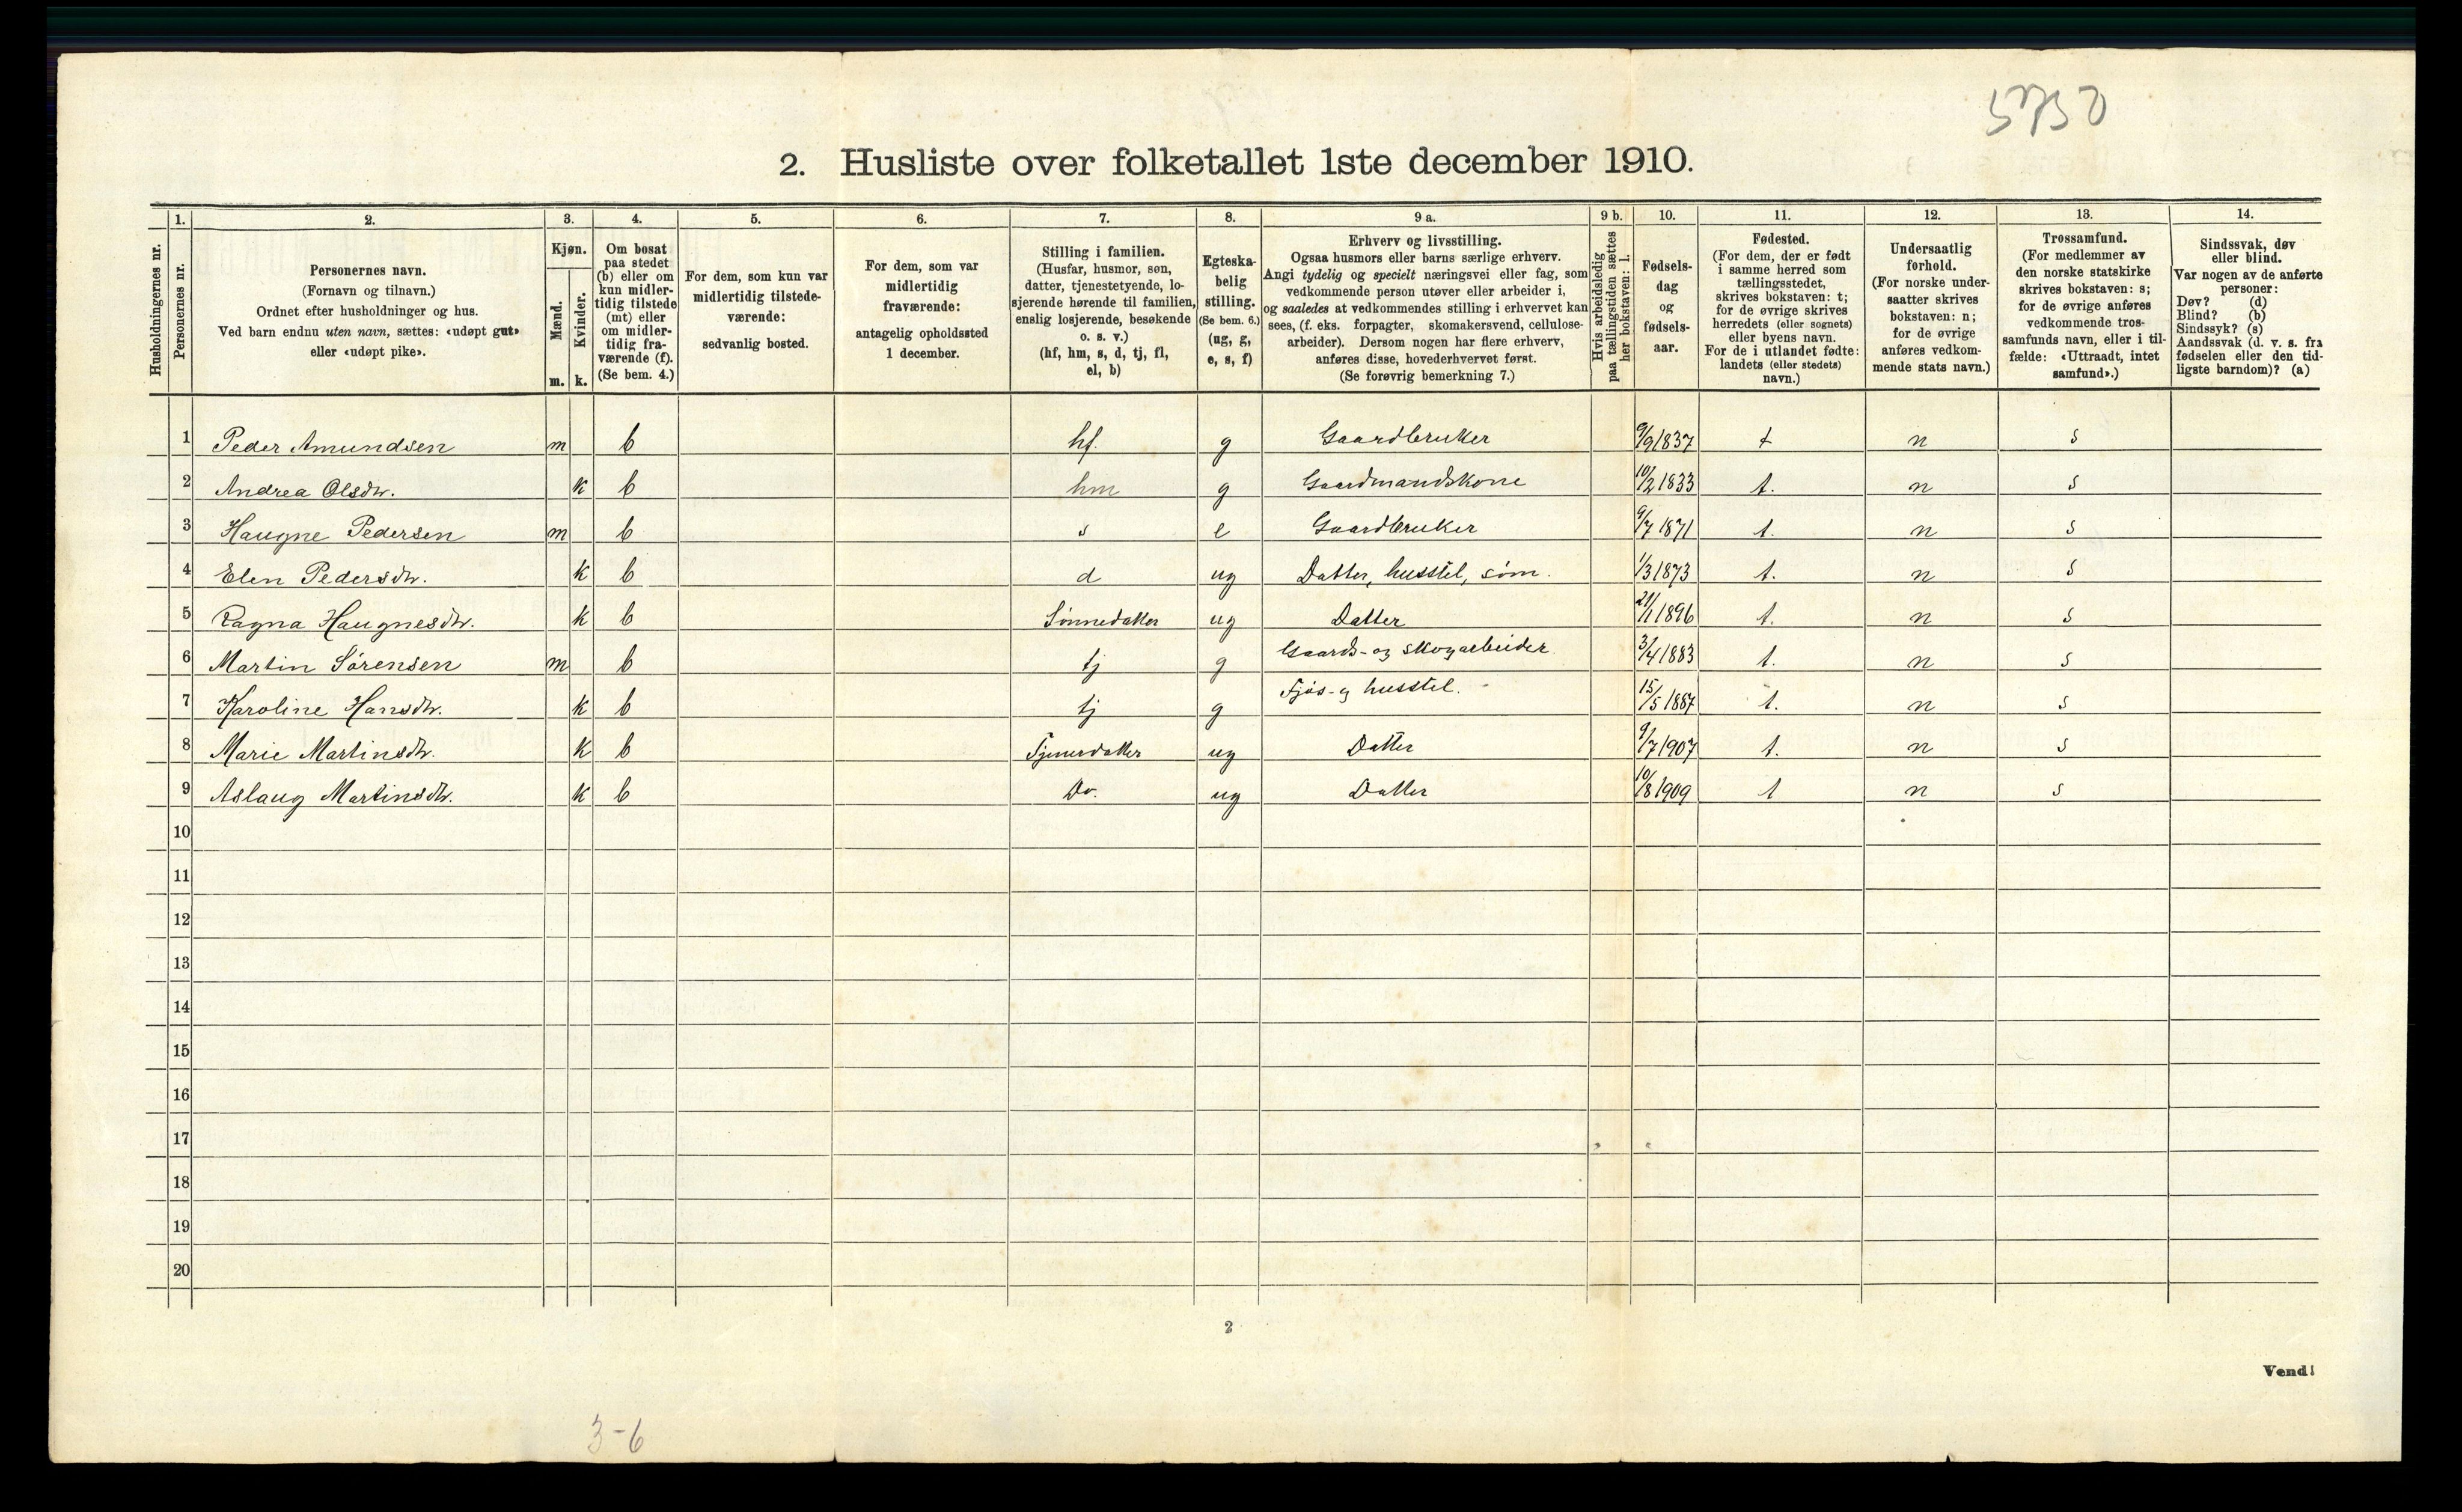 5750
2. Husliste over folketallet 1ste december 1910.
Husholdningernes nr.
1. Personernes nr.
2. Personernes navn. (Fornavn og tilnavn.) Ordnet efter husholdninger og hus. Ved barn endnu uten navn, sættes: «udøpt gut» eller «udøpt pike».
3. Kjøn. Mænd. m. Kvinder. k.
4. Om bosat paa stedet (b) eller om kun midlertidig tilstede (mt) eller om midlertidig fraværende (f). (Se bem. 4.)
5. For dem, som kun var midlertidig tilstedeværende: sedvanlig bosted.
6. For dem, som var midlertidig fraværende: antagelig opholdssted 1 december.
7. Stilling i familien. (Husfar, husmor, søn, datter, tjenestetyende, losjerende hørende til familien, enslig losjerende, besøkende o. s. v.) (hf, hm, s, d, tj, fl, el, b)
8. Egteskabelig stilling. (Se bem. 6.) (ug, g, e, s, f)
9 a. Erhverv og livsstilling. Ogsaa husmors eller barns særlige erhverv. Angi tydelig og specielt næringsvei eller fag, som vedkommende person utøver eller arbeider i, og saaledes at vedkommendes stilling i erhvervet kan sees, (f. eks. forpagter, skomakersvend, cellulosearbeider). Dersom nogen har flere erhverv, anføres disse, hovederhvervet først. (Se forøvrig bemerkning 7.)
9 b. Hvis arbeidsledig paa tællingstiden sættes her bokstaven: l.
10. Fødselsdag og fødselsaar.
11. Fødested. (For dem, der er født i samme herred som tællingsstedet, skrives bokstaven: t; for de øvrige skrives herredets (eller sognets) eller byens navn. For de i utlandet fødte: landets (eller stedets) navn.)
12. Undersaatlig forhold. (For norske undersaatter skrives bokstaven: n; for de øvrige anføres vedkommende stats navn.)
13. Trossamfund. (For medlemmer av den norske statskirke skrives bokstaven: s; for de øvrige anføres vedkommende trossamfunds navn, eller i tilfælde: «Uttraadt, intet samfund».)
14. Sindssvak, døv eller blind. Var nogen av de anførte personer: Døv? (d) Blind? (b) Sindssyk? (s) Aandssvak (d. v. s. fra fødselen eller den tidligste barndom)? (a)
1 Peder Amundsen m b hf. g Gaardbruker 9/9 1837 t n s
2 Andrea Olsdtr. k b hm g Gaardmandskone 10/2 1833 t. n s
3 Haugne Pedersen m b s e Gaardbruker 9/7 1871 t. n s
4 Elen Pedersdtr. k b d ug Datter, husstel, söm. 1/3 1873 t. n s
5 Ragna Haugnesdtr. k b Sönnedatter ug Datter 21/11 1896 t. n s
6 Martin Sörensen m b tj g Gaards- og skogarbeider 3/4 1883 t. n s
7 Karoline Hansdtr. k b tj g Fjös- og husstel. 15/5 1887 t. n s
8 Marie Martinsdtr. k b Tjenerdatter ug Datter 9/7 1907 t. n s
9 Aslaug Martinsdtr. k b Do. ug Datter 10/8 1909 t n s
10
11
12
13
14
15
16
17
18
19
20
2
Vend!
3-6